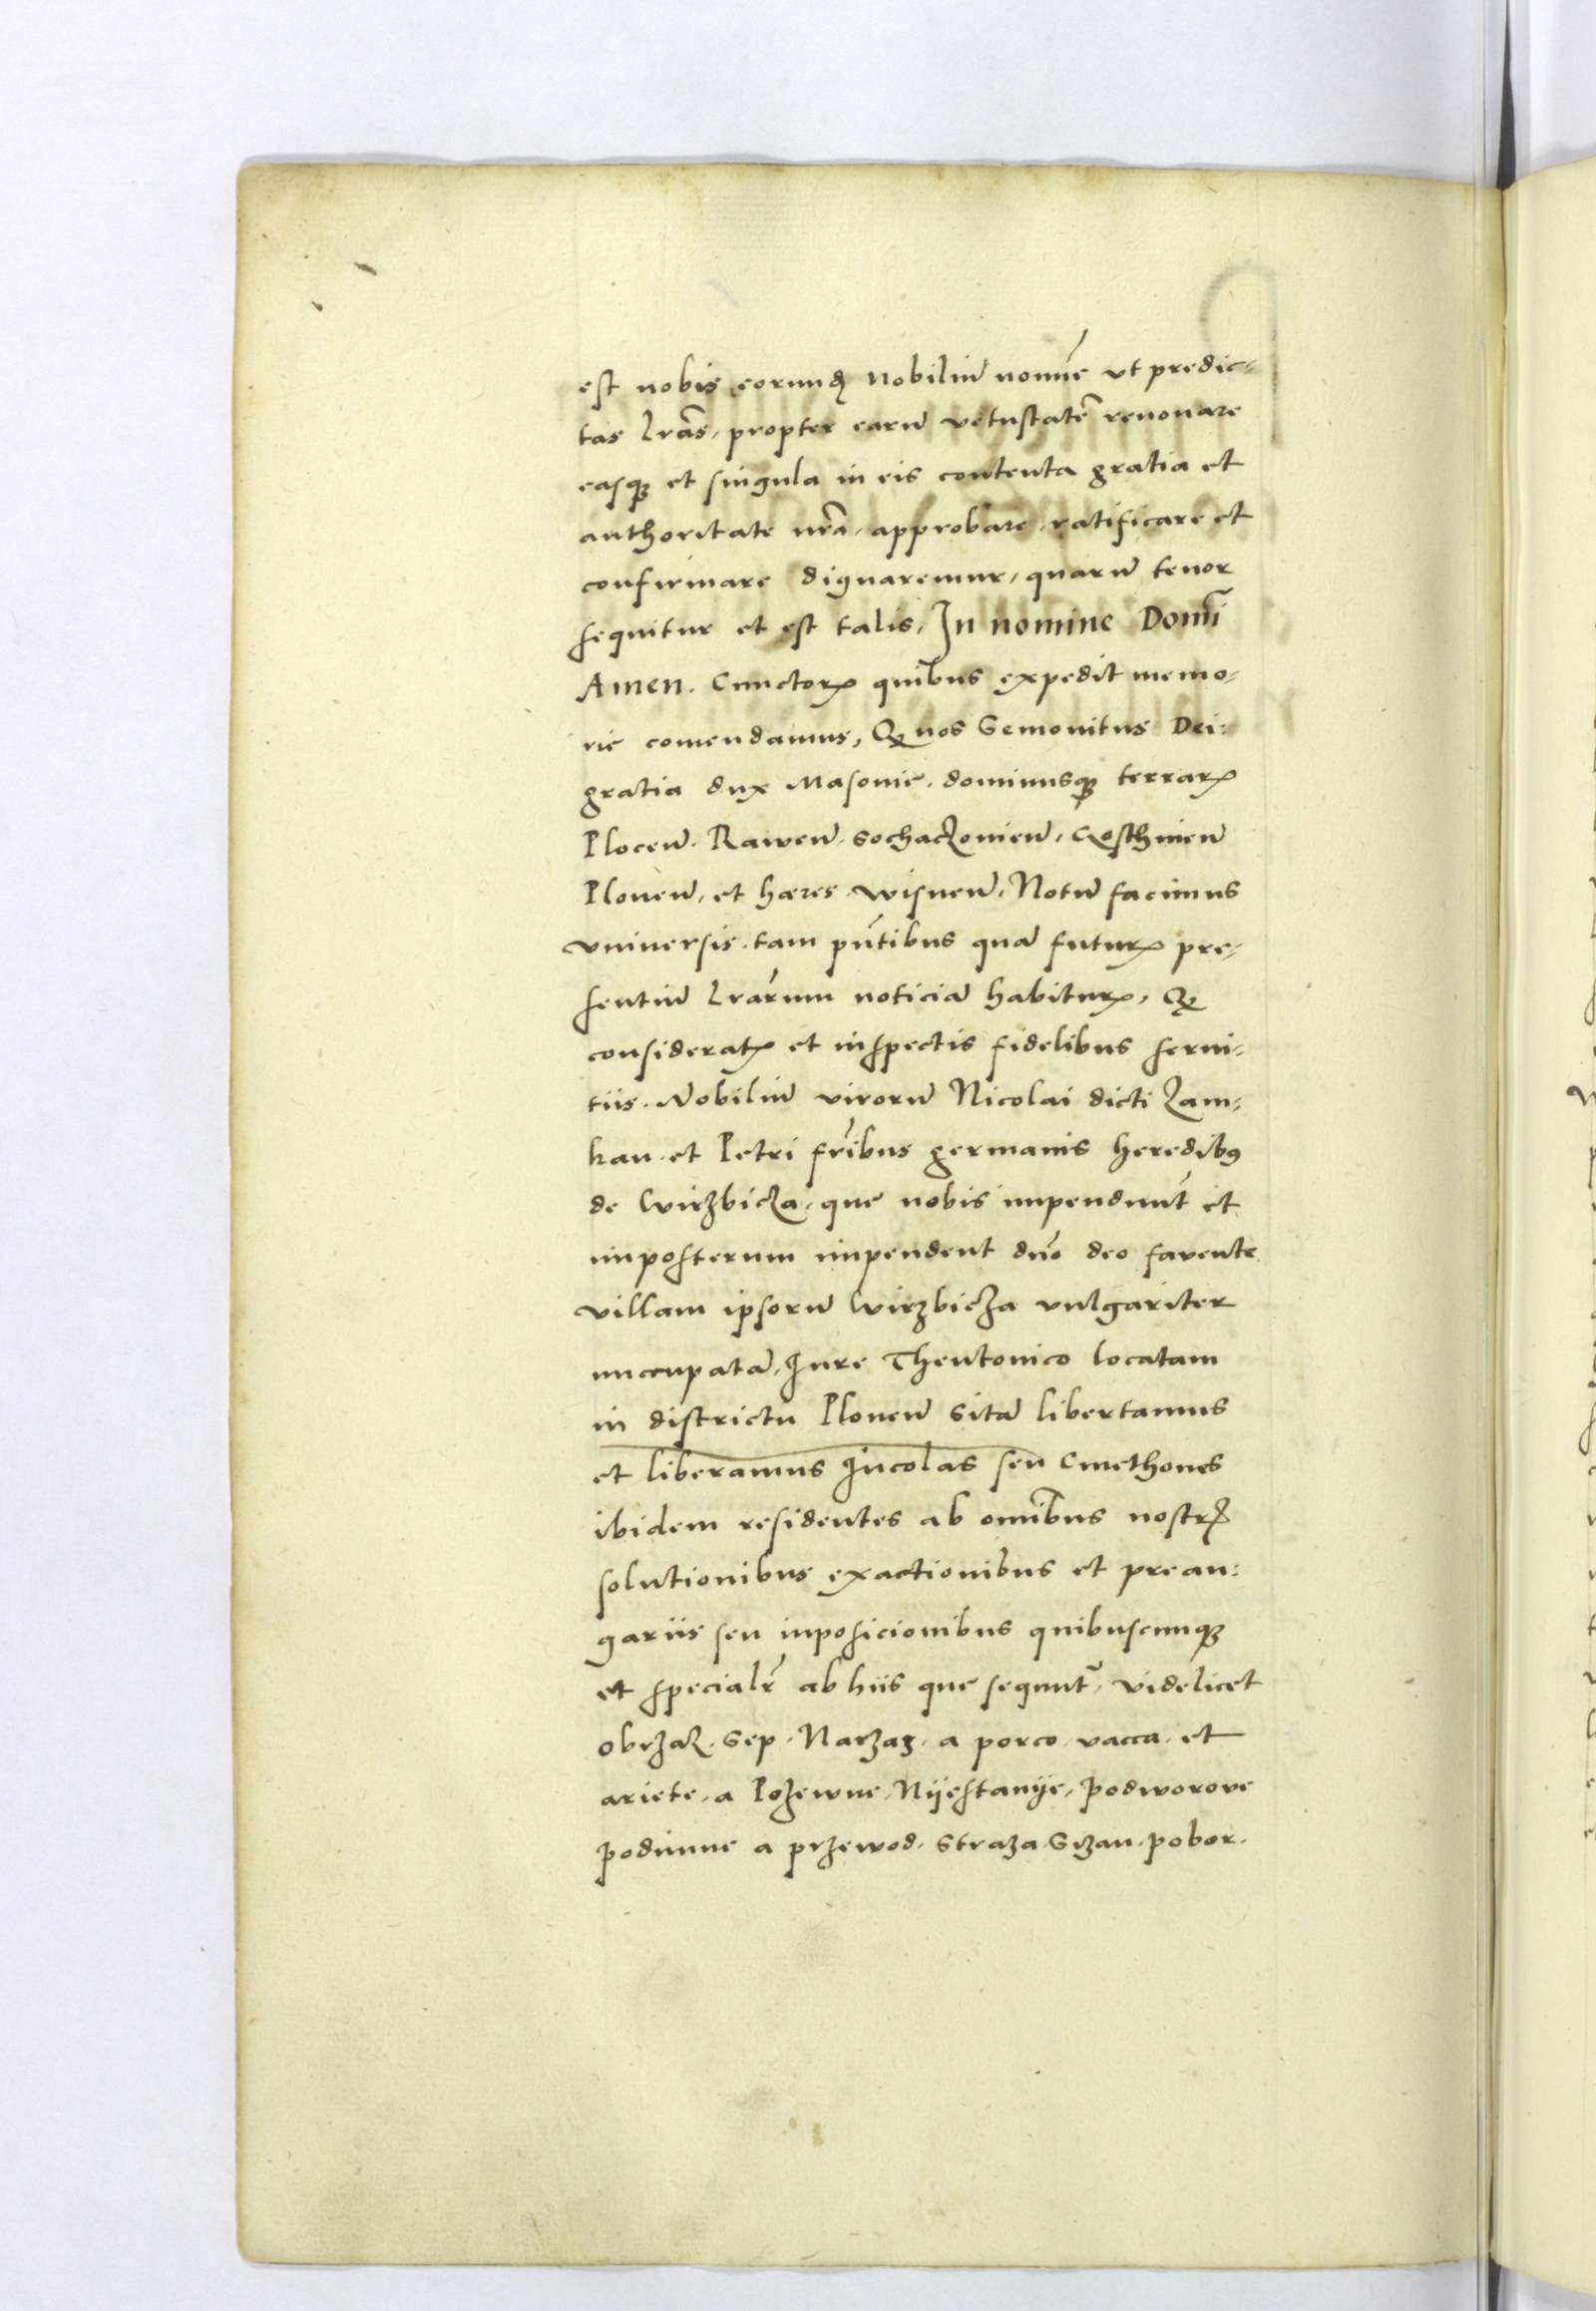 est nobis eorundꝫ nobiliū nomīe vt predic-
tas lr̄as, propter earū vetustatē renouare
easqꝫ et singula in eis contenta gratia et
authoritate nr̄a, approbare, ratificare et
confirmare dignaremur, quarū tenor
sequitur et est talis, In nomine Domī
Amen. Cunctorꝝ quibus expedit memo-
rie comendamus, Qꝫ nos Semouitus Dei
gratia dux Masouie, dominusqꝫ terrarꝝ
Plocen̄. Rawen̄. Sochaczouien̄, Gosthinen̄
Plonen̄, et hæres wisnen̄, Notū facimus
vniuersis tam pn̄tibus quā futurꝝ pre-
sentiū lrārum noticiā habiturꝝ, Qꝫ
consideratꝝ et inspectis fidelibus serui-
tiis. Nobiliū virorū Nicolai dicti Zam-
han et Petri fr̄ibus germanis heredibꝰ
de Wirzbicza, que nobis impendunt et
imposterum impendent dn̄o deo fauente
villam ipsorū Wirzbicza vulgariter
nuncupatā, Iure Theutonico locatam
in districtu Plonen̄ sitā libertamus
et liberamus Incolas seu Cmethones
ibidem residentes ab omībus nostrꝝ
solutionibus exactionibus et prean-
gariis seu inposicionibus quibuscunqꝫ
et specialr̄ ab hiis que sequnt̄, videlicet
obrzaz. Sep. Narzaz, a porco, vacca, et
ariete, a Pozewne, Nijestanÿe, podworove
podimne a przewod, Straza Szan pobor.